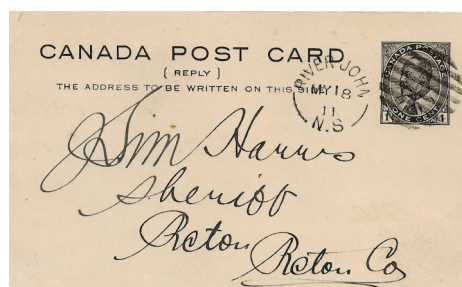 CANADA POST CARD
( REPLY )
THE ADDRESS TO BE WRITTEN ON THIS SIDE
RIVER JOHN
MY 18
11
N.S
CANADA POSTAGE
1 ONE CENT 1
Harris
Sheriff
Picton
Picton Co